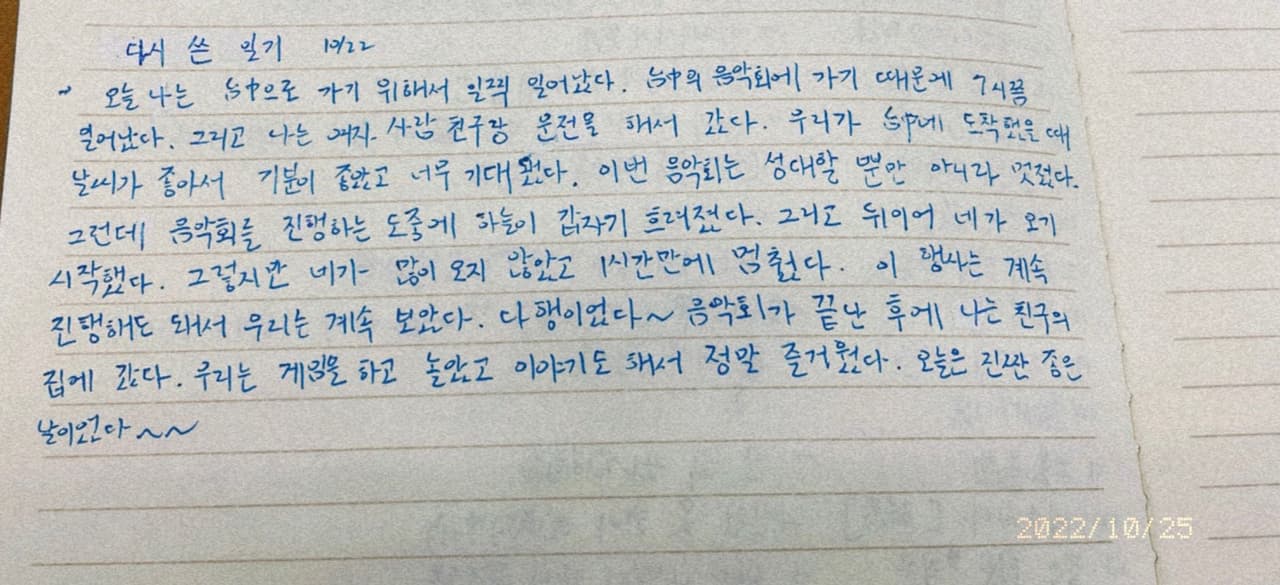 다시 쓴 일기 10/22
~ 오늘 나는 台中으로 가기 위해서 일찍 일어났다. 台中의 음악회에 가기 때문에 7시쯤
일어났다. 그리고 나는 여자 사람 친구랑 운전을 해서 갔다. 우리가 台中에 도착했을 때
날씨가 좋아서 기분이 좋았고 너무 기대됐다. 이번 음악회는 성대할 뿐만 아니라 멋졌다.
그런데 음악회를 진행하는 도중에 하늘이 갑자기 흐려졌다. 그리고 뒤이어 네가 오기
시작했다. 그렇지만 네가 많이 오지 않았고 1시간만에 멈췄다. 이 행사는 계속
진행해도 돼서 우리는 계속 보았다. 다행이었다~ 음악회가 끝난 후에 나는 친구의
집에 갔다. 우리는 게임을 하고 놀았고 이야기도 해서 정말 즐거웠다. 오늘은 진짜 좋은
날이었다~~
2022/10/25